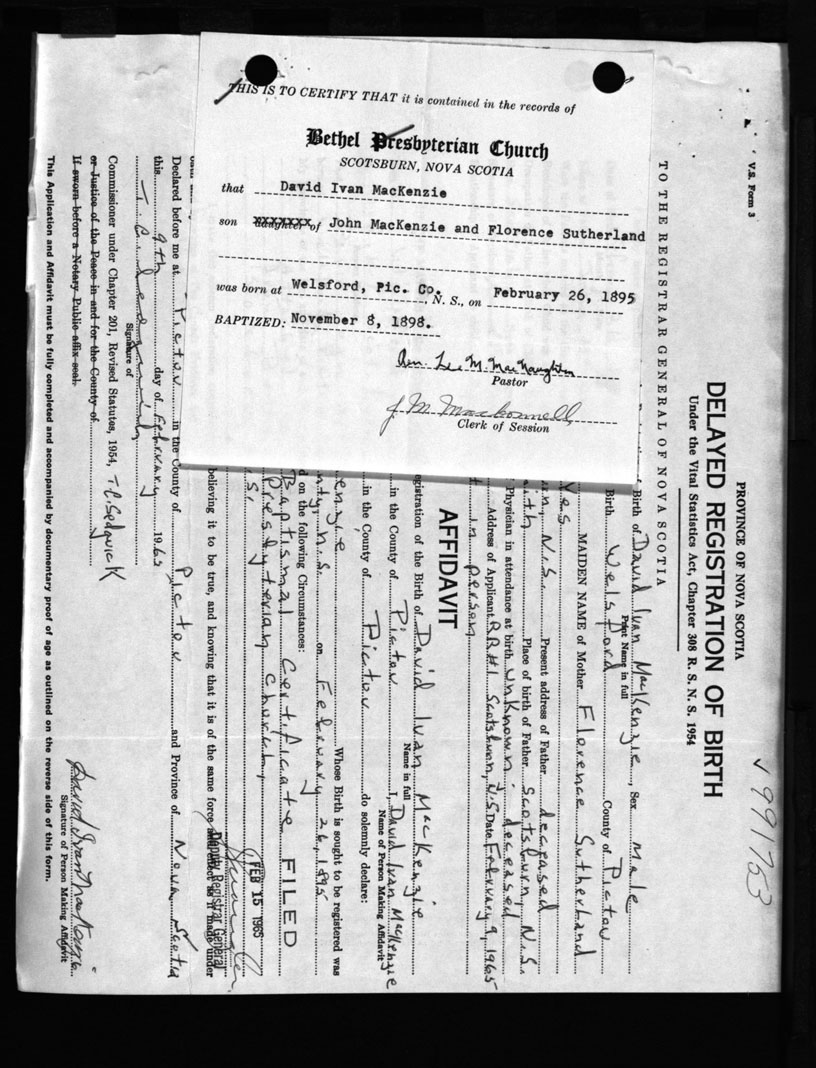 THIS IS TO CERTIFY THAT it is contained in the records of
Bethel Presbyterian Church
SCOTSBURN, NOVA SCOTIA
that David Ivan MacKenzie
son XXXXXXXX of John MacKenzie and Florence Sutherland
was born at Welsford, Pic. Co. , N. S., on February 26, 1895
BAPTIZED: November 8, 1898.
Rev. L. M. MacNaughton
Pastor
J. M. MacConnell
Clerk of Session
V.S. Form 3
991753
PROVINCE OF NOVA SCOTIA
DELAYED REGISTRATION OF BIRTH
Under the Vital Statistics Act, Chapter 308 R. S. N. S. 1954
TO THE REGISTRAR GENERAL OF NOVA SCOTIA
Birth of David Ivan MacKenzie, Sex male
Print Name in full
Birth Welsford County of Pictou
MAIDEN NAME of Mother Florence Sutherland
Present address of Father deceased
N.S. Place of birth of Father Scotsburn, N.S.
Physician in attendance at birth unknown: deceased
Address of Applicant RR#1 Scotsburn, N.S. Date February 9, 1965
in person
AFFIDAVIT
egistration of the Birth of David Ivan MacKenzie
Name in full
in the County of Pictou I, David Ivan MacKenzie
Name of Person Making Affidavit
in the County of Pictou do solemnly declare:
enzie Whose Birth is sought to be registered was
nty, N.S. on February 26, 1895
d on the following Circumstances:
Baptismal Certificate FILED
Presbyterian Church,
S. FEB 15 1965
believing it to be true, and knowing that it is of the same force and effect as if made under
Deputy Registrar General
Declared before me at Pictou in the County of Pictou and Province of Nova Scotia
this 9th day of February 1965
Signature of
Commissioner under Chapter 201, Revised Statutes, 1954, T.C. Sedgwick
or Justice of the Peace in and for the County of
If sworn before a Notary Public affix seal.
David Ivan MacKenzie
Signature of Person Making Affidavit
This Application and Affidavit must be fully completed and accompanied by documentary proof of age as outlined on the reverse side of this form.